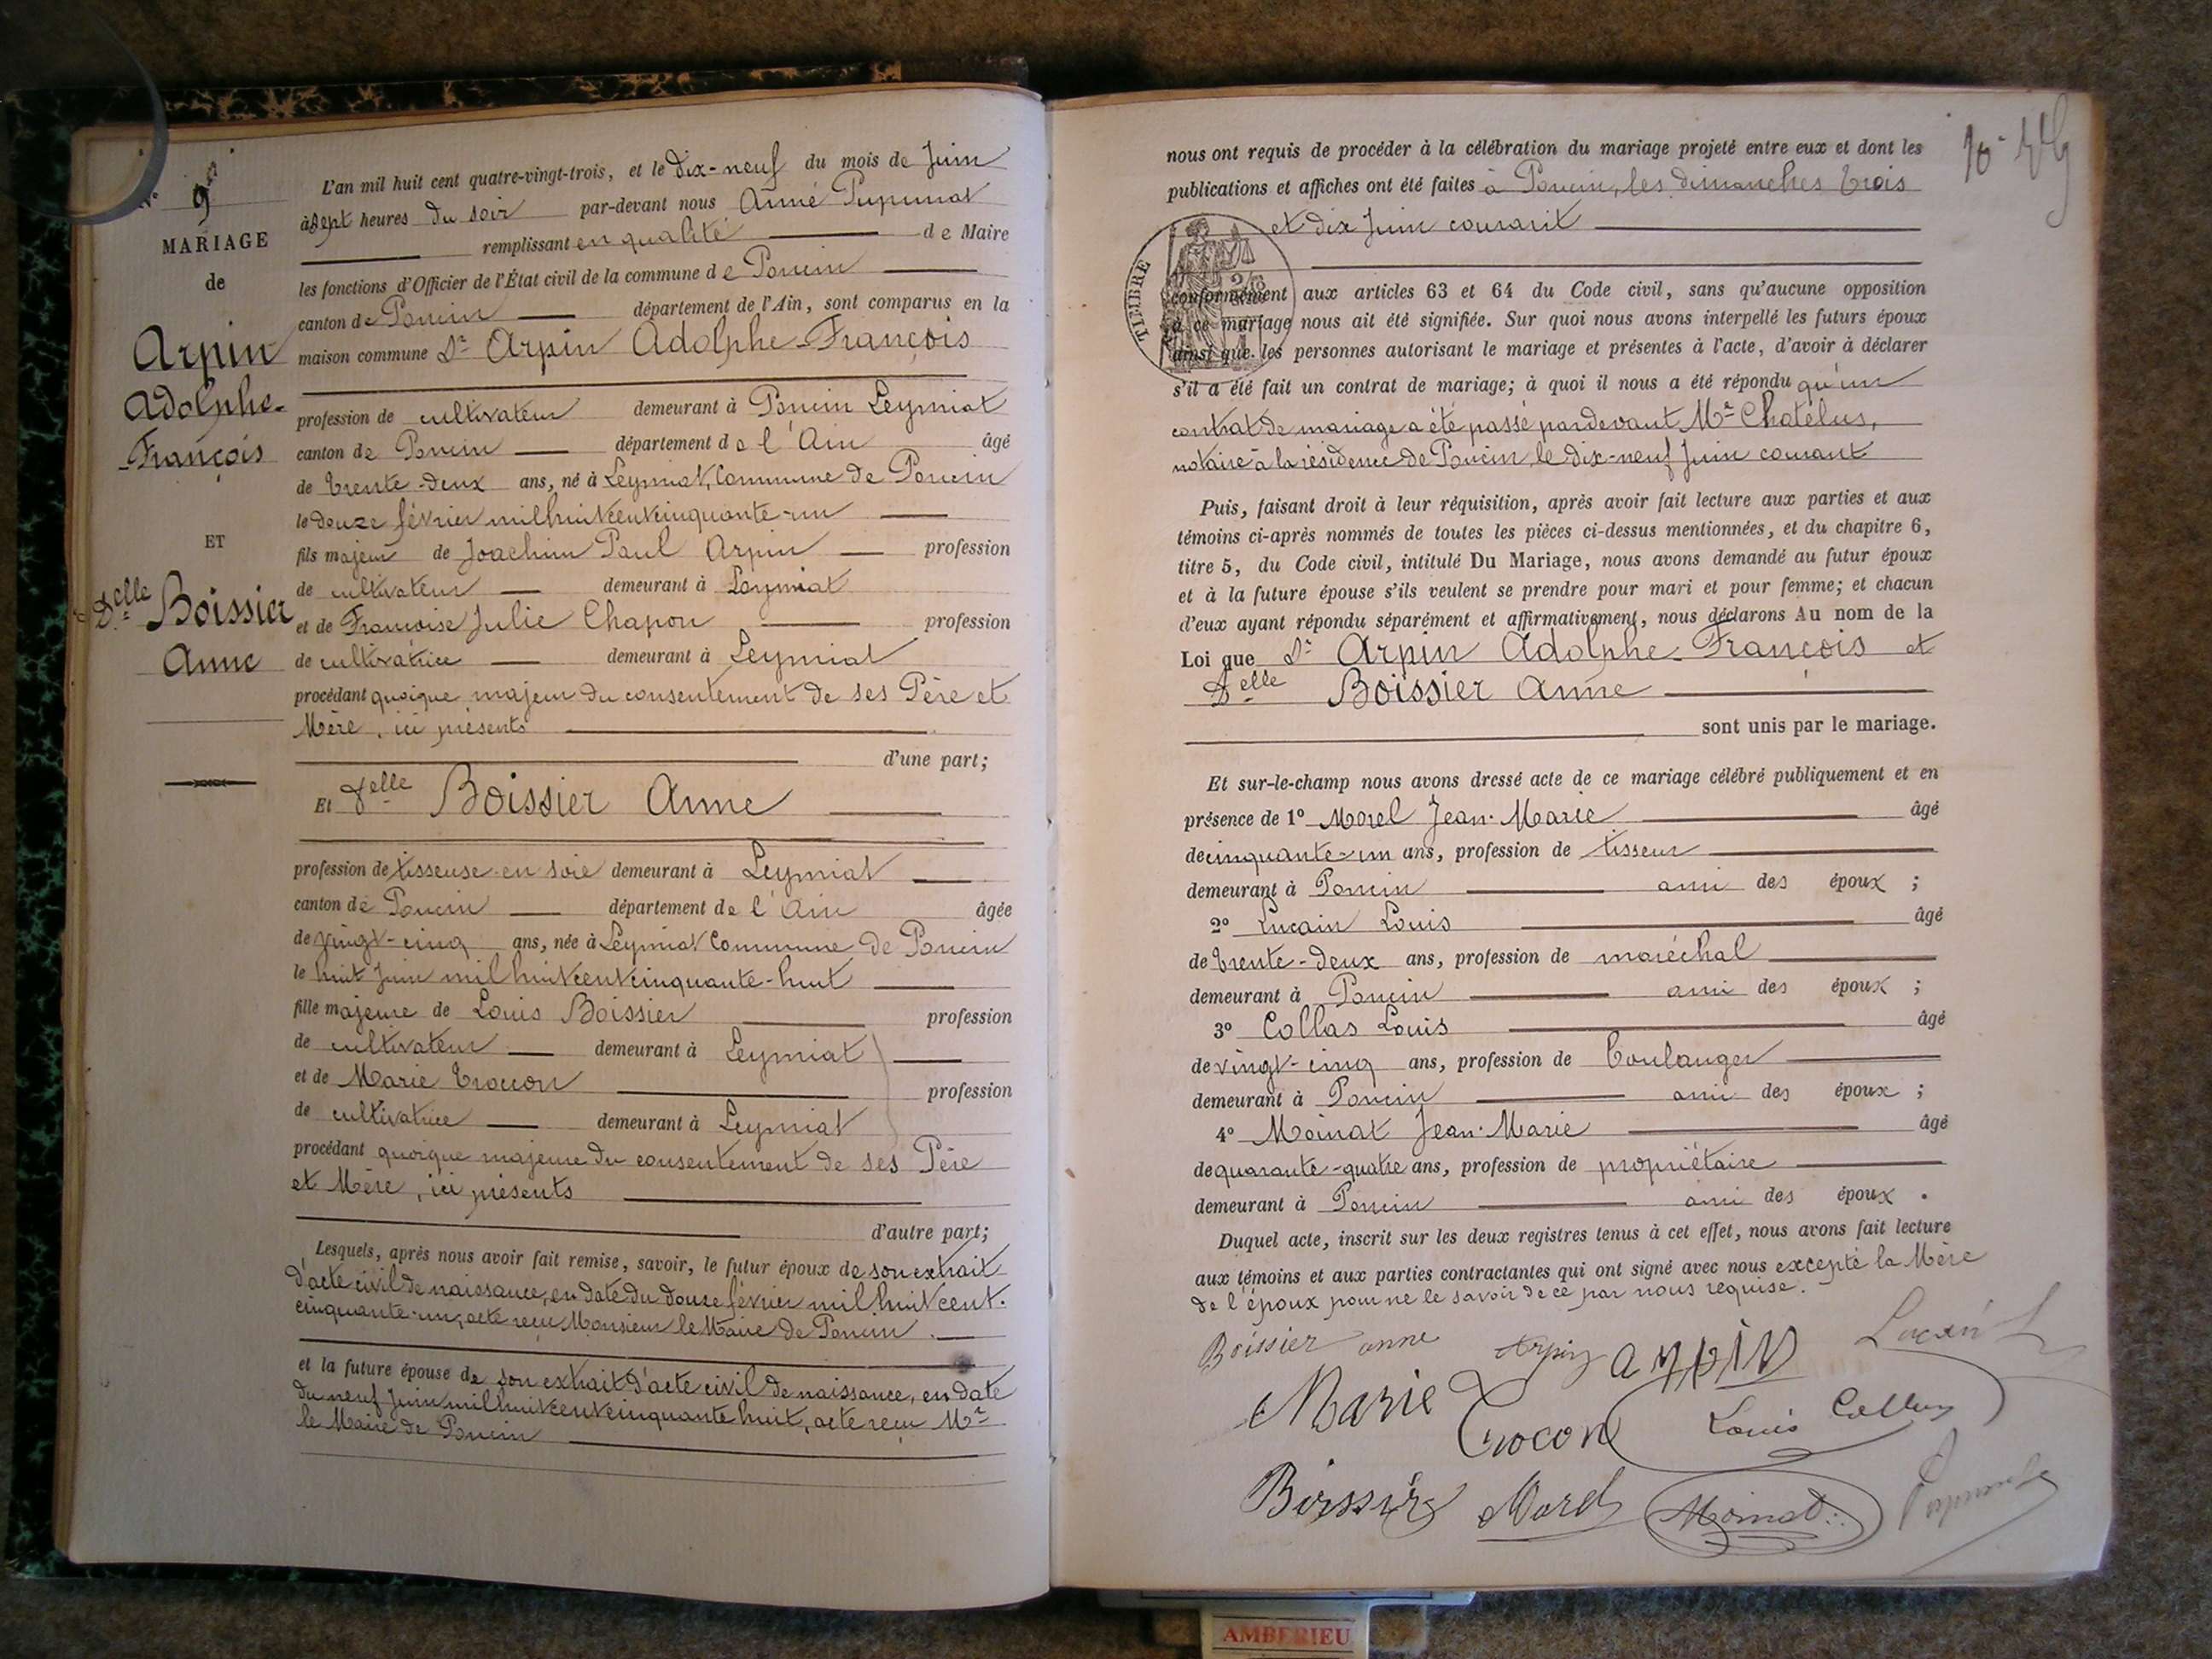 N° 9
MARIAGE
de
Arpin
Adolphe-
François
ET
Delle Boissier
Anne
L'an mil huit cent quatre-vingt-trois, et le dix-neuf du mois de Juin
à sept heures du soir par-devant nous Aimé Pupunat
remplissant en qualité de Maire
les fonctions d'Officier de l'État civil de la commune de Poncin
canton de Poncin département de l'Ain, sont comparus en la
maison commune Sr Arpin Adolphe-François
profession de cultivateur demeurant à Poncin Leymiat
canton de Poncin département de l'Ain âgé
de trente-deux ans, né à Leymiat, Commune de Poncin
le douze février mil huit cent cinquante-un
fils majeur de Joachim Paul Arpin profession
de cultivateur demeurant à Leymiat
et de Françoise Julie Chapon profession
de cultivatrice demeurant à Leymiat
procédant quoique majeur du consentement de ses Père et
Mère, ici présents
d'une part;
Et Delle Boissier Anne
profession de tisseuse en soie demeurant à Leymiat
canton de Poncin département de l'Ain âgée
de vingt-cinq ans, née à Leymiat Commune de Poncin
le huit Juin mil huit cent cinquante-huit
fille majeure de Louis Boissier profession
de cultivateur demeurant à Leymiat
et de Marie Trocon profession
de cultivatrice demeurant à Leymiat
procédant quoique majeure du consentement de ses Père
et Mère, ici présents
d'autre part;
Lesquels, après nous avoir fait remise, savoir, le futur époux de son extrait
d'acte civil de naissance, en date du douze février mil huit cent.
cinquante-un, acte reçu Monsieur le Maire de Poncin.
et la future épouse de son extrait d'acte civil de naissance, en date
du neuf Juin mil huit cent cinquante huit, acte reçu Mr
le Maire de Poncin
nous ont requis de procéder à la célébration du mariage projeté entre eux et dont les
publications et affiches ont été faites à Poncin, les dimanches trois
et dix Juin courant
TIMBRE
conformément aux articles 63 et 64 du Code civil, sans qu'aucune opposition
à ce mariage nous ait été signifiée. Sur quoi nous avons interpellé les futurs époux
ainsi que les personnes autorisant le mariage et présentes à l'acte, d'avoir à déclarer
s'il a été fait un contrat de mariage; à quoi il nous a été répondu qu'un
contrat de mariage a été passé pardevant Mr Chatelus,
notaire à la résidence de Poncin, le dix-neuf Juin courant
Puis, faisant droit à leur réquisition, après avoir fait lecture aux parties et aux
témoins ci-après nommés de toutes les pièces ci-dessus mentionnées, et du chapitre 6,
titre 5, du Code civil, intitulé Du Mariage, nous avons demandé au futur époux
et à la future épouse s'ils veulent se prendre pour mari et pour femme; et chacun
d'eux ayant répondu séparément et affirmativement, nous déclarons Au nom de la
Loi que Sr Arpin Adolphe-François et
Delle Boissier Anne
sont unis par le mariage.
Et sur-le-champ nous avons dressé acte de ce mariage célébré publiquement et en
présence de 1° Morel Jean-Marie âgé
de cinquante-un ans, profession de tisseur
demeurant à Poncin ami des époux ;
2° Lucain Louis âgé
de trente-deux ans, profession de maréchal
demeurant à Poncin ami des époux ;
3° Collas Louis âgé
de vingt-cinq ans, profession de boulanger
demeurant à Poncin ami des époux ;
4° Moinat Jean-Marie âgé
de quarante-quatre ans, profession de propriétaire
demeurant à Poncin ami des époux .
Duquel acte, inscrit sur les deux registres tenus à cet effet, nous avons fait lecture
aux témoins et aux parties contractantes qui ont signé avec nous excepté la Mère
de l'époux pour ne le savoir de ce par nous requise.
Boissier anne Arpin arpin Lucain L
Marie Trocon Louis Collas
Boissier Morel Moinat
AMBERIEU